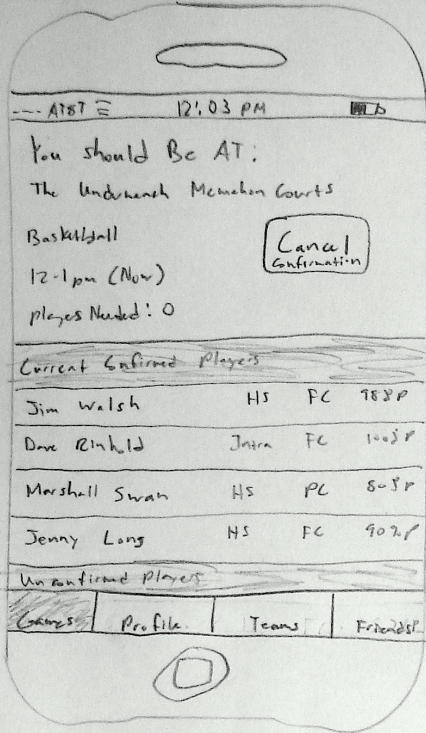 AT&T 12:03 PM
You should Be AT:
The Underneath Mcmahon Courts
Basketball
12-1pm (Now)
players Needed: 0
Cancel
Confirmation
Current Confirmed Players
Jim Walsh HS FC 98%P
Dave Rinhold Intra FC 100%P
Marshall Swan HS PC 80%P
Jenny Long HS FC 90%P
Unconfirmed Players
Games Profile Teams Friends